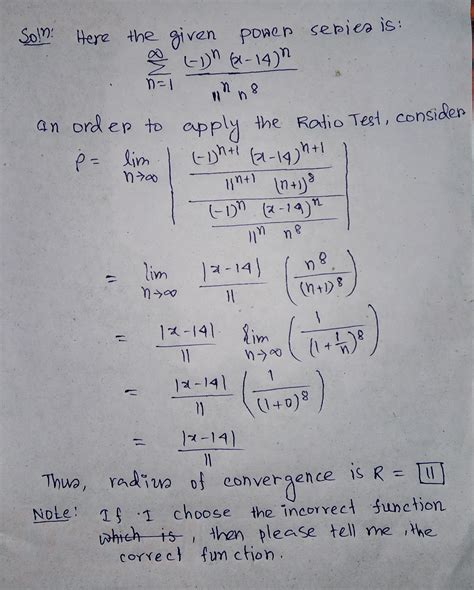 Soln: Here the given power series is:
∞
∑ (-1)^n (x-14)^n / 11^n n^8
n=1
an order to apply the Ratio Test, consider
ρ = lim n→∞ | ((-1)^{n+1} (x-14)^{n+1} / 11^{n+1} (n+1)^8) / ((-1)^n (x-14)^n / 11^n n^8) |
= lim n→∞ |x-14| / 11 (n^8 / (n+1)^8)
= |x-14| / 11 lim n→∞ (1 / (1+1/n)^8)
= |x-14| / 11 (1 / (1+0)^8)
= |x-14| / 11
Thus, radius of convergence is R = 11
Note: If I choose the incorrect function
which is, then please tell me, the
correct function.